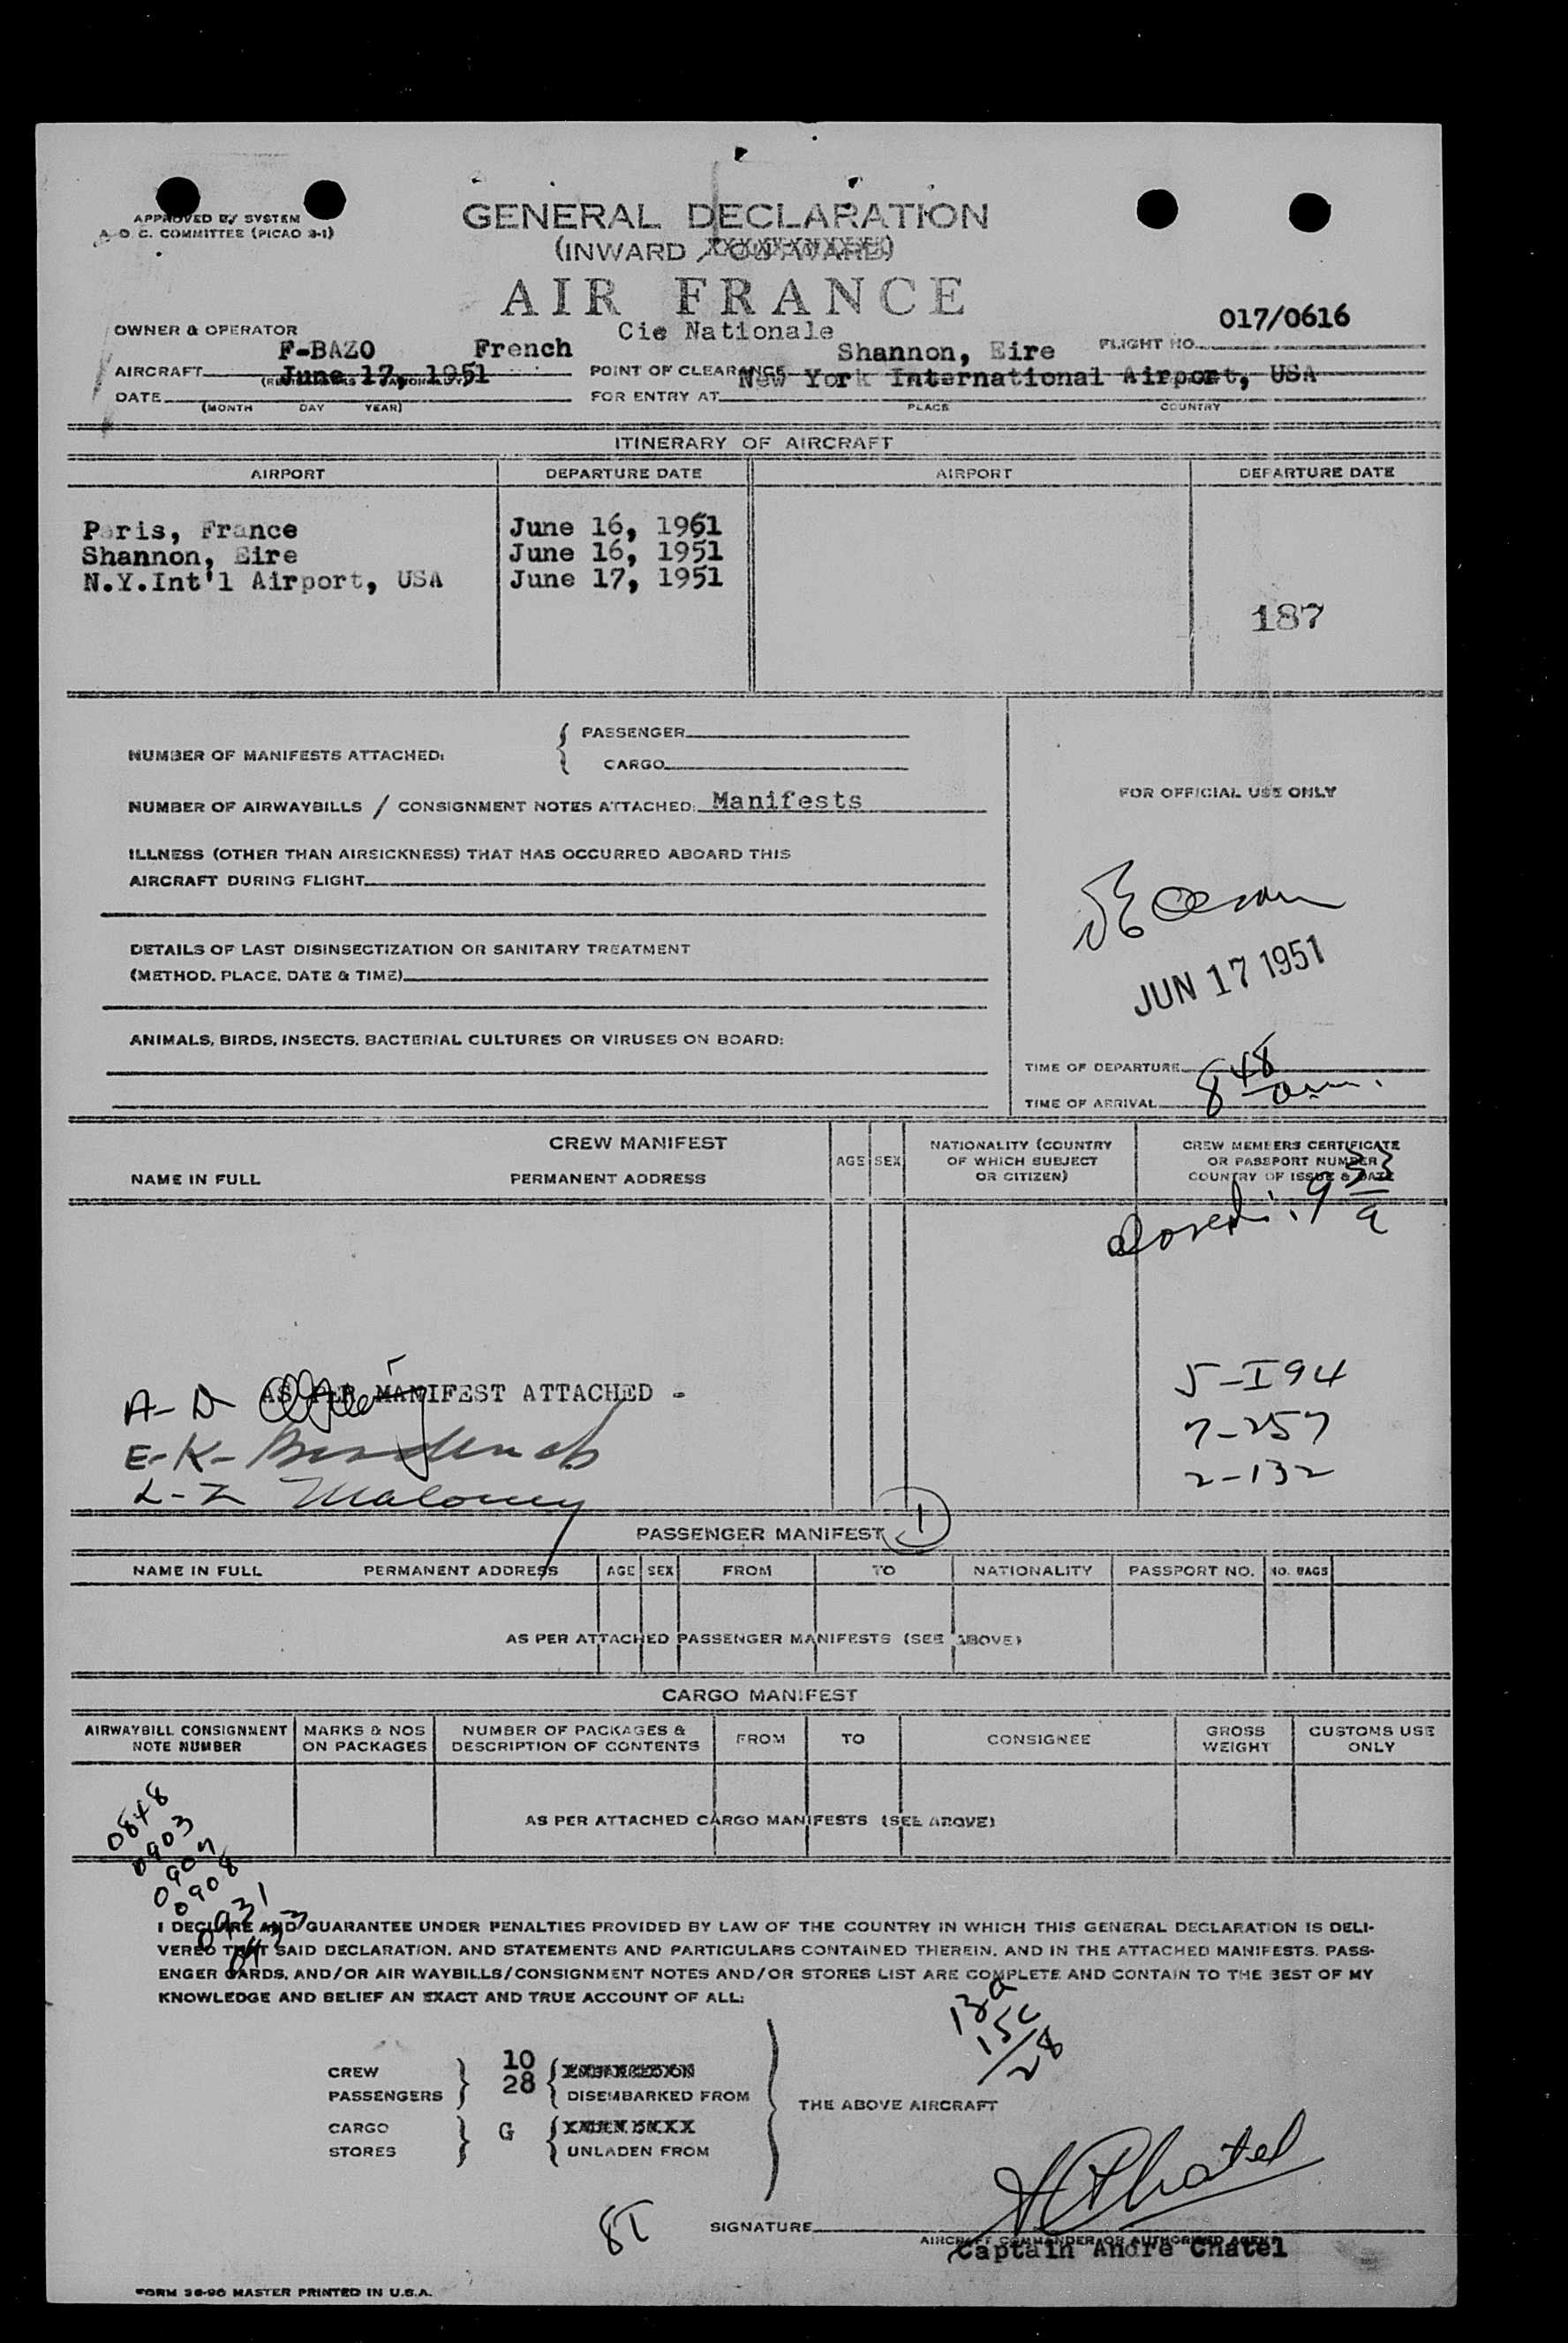 APPROVED BY SYSTEM
A. O C. COMMITTEE (PICAO 3-1)
GENERAL DECLARATION
(INWARD / OUTWARD)
AIR FRANCE
OWNER & OPERATOR Cie Nationale 017/0616
F-BAZO French Shannon, Eire FLIGHT NO.
AIRCRAFT POINT OF CLEARANCE
June 17, 1951 New York International Airport, USA
DATE FOR ENTRY AT
(MONTH DAY YEAR) PLACE COUNTRY
ITINERARY OF AIRCRAFT
AIRPORT DEPARTURE DATE AIRPORT DEPARTURE DATE
Paris, France June 16, 1951
Shannon, Eire June 16, 1951
N.Y.Int'l Airport, USA June 17, 1951
187
NUMBER OF MANIFESTS ATTACHED: { PASSENGER
CARGO
NUMBER OF AIRWAYBILLS / CONSIGNMENT NOTES ATTACHED: Manifests
FOR OFFICIAL USE ONLY
ILLNESS (OTHER THAN AIRSICKNESS) THAT HAS OCCURRED ABOARD THIS
AIRCRAFT DURING FLIGHT
DETAILS OF LAST DISINSECTIZATION OR SANITARY TREATMENT
(METHOD, PLACE, DATE & TIME)
JUN 17 1951
ANIMALS, BIRDS, INSECTS, BACTERIAL CULTURES OR VIRUSES ON BOARD:
TIME OF DEPARTURE
TIME OF ARRIVAL 8 48 am.
CREW MANIFEST
NAME IN FULL PERMANENT ADDRESS AGE SEX NATIONALITY (COUNTRY
OF WHICH SUBJECT
OR CITIZEN)
CREW MEMBERS CERTIFICATE
OR PASSPORT NUMBER
COUNTRY OF ISSUE & DATE
9 33 a
AS PER MANIFEST ATTACHED -
A-D
5-I94
E-K-
7-257
L-Z Maloney
2-132
PASSENGER MANIFEST 1
NAME IN FULL PERMANENT ADDRESS AGE SEX FROM TO NATIONALITY PASSPORT NO. NO. BAGS
AS PER ATTACHED PASSENGER MANIFESTS (SEE ABOVE)
CARGO MANIFEST
AIRWAYBILL CONSIGNMENT
NOTE NUMBER
MARKS & NOS
ON PACKAGES
NUMBER OF PACKAGES &
DESCRIPTION OF CONTENTS
FROM TO CONSIGNEE
GROSS
WEIGHT
CUSTOMS USE
ONLY
AS PER ATTACHED CARGO MANIFESTS (SEE ABOVE)
0848
0903
0907
0908
0931
0933
I DECLARE AND GUARANTEE UNDER PENALTIES PROVIDED BY LAW OF THE COUNTRY IN WHICH THIS GENERAL DECLARATION IS DELI-
VERED THAT SAID DECLARATION, AND STATEMENTS AND PARTICULARS CONTAINED THEREIN, AND IN THE ATTACHED MANIFESTS, PASS-
ENGER CARDS, AND/OR AIR WAYBILLS/CONSIGNMENT NOTES AND/OR STORES LIST ARE COMPLETE AND CONTAIN TO THE BEST OF MY
KNOWLEDGE AND BELIEF AN EXACT AND TRUE ACCOUNT OF ALL:
13a
15c
28
CREW 10
PASSENGERS 28 DISEMBARKED FROM
THE ABOVE AIRCRAFT
CARGO G
STORES UNLADEN FROM
SIGNATURE A Chatel
AIRCRAFT COMMANDER OR AUTHORISED AGENT
Captain Andre Chatel
FORM 36-90 MASTER PRINTED IN U.S.A.